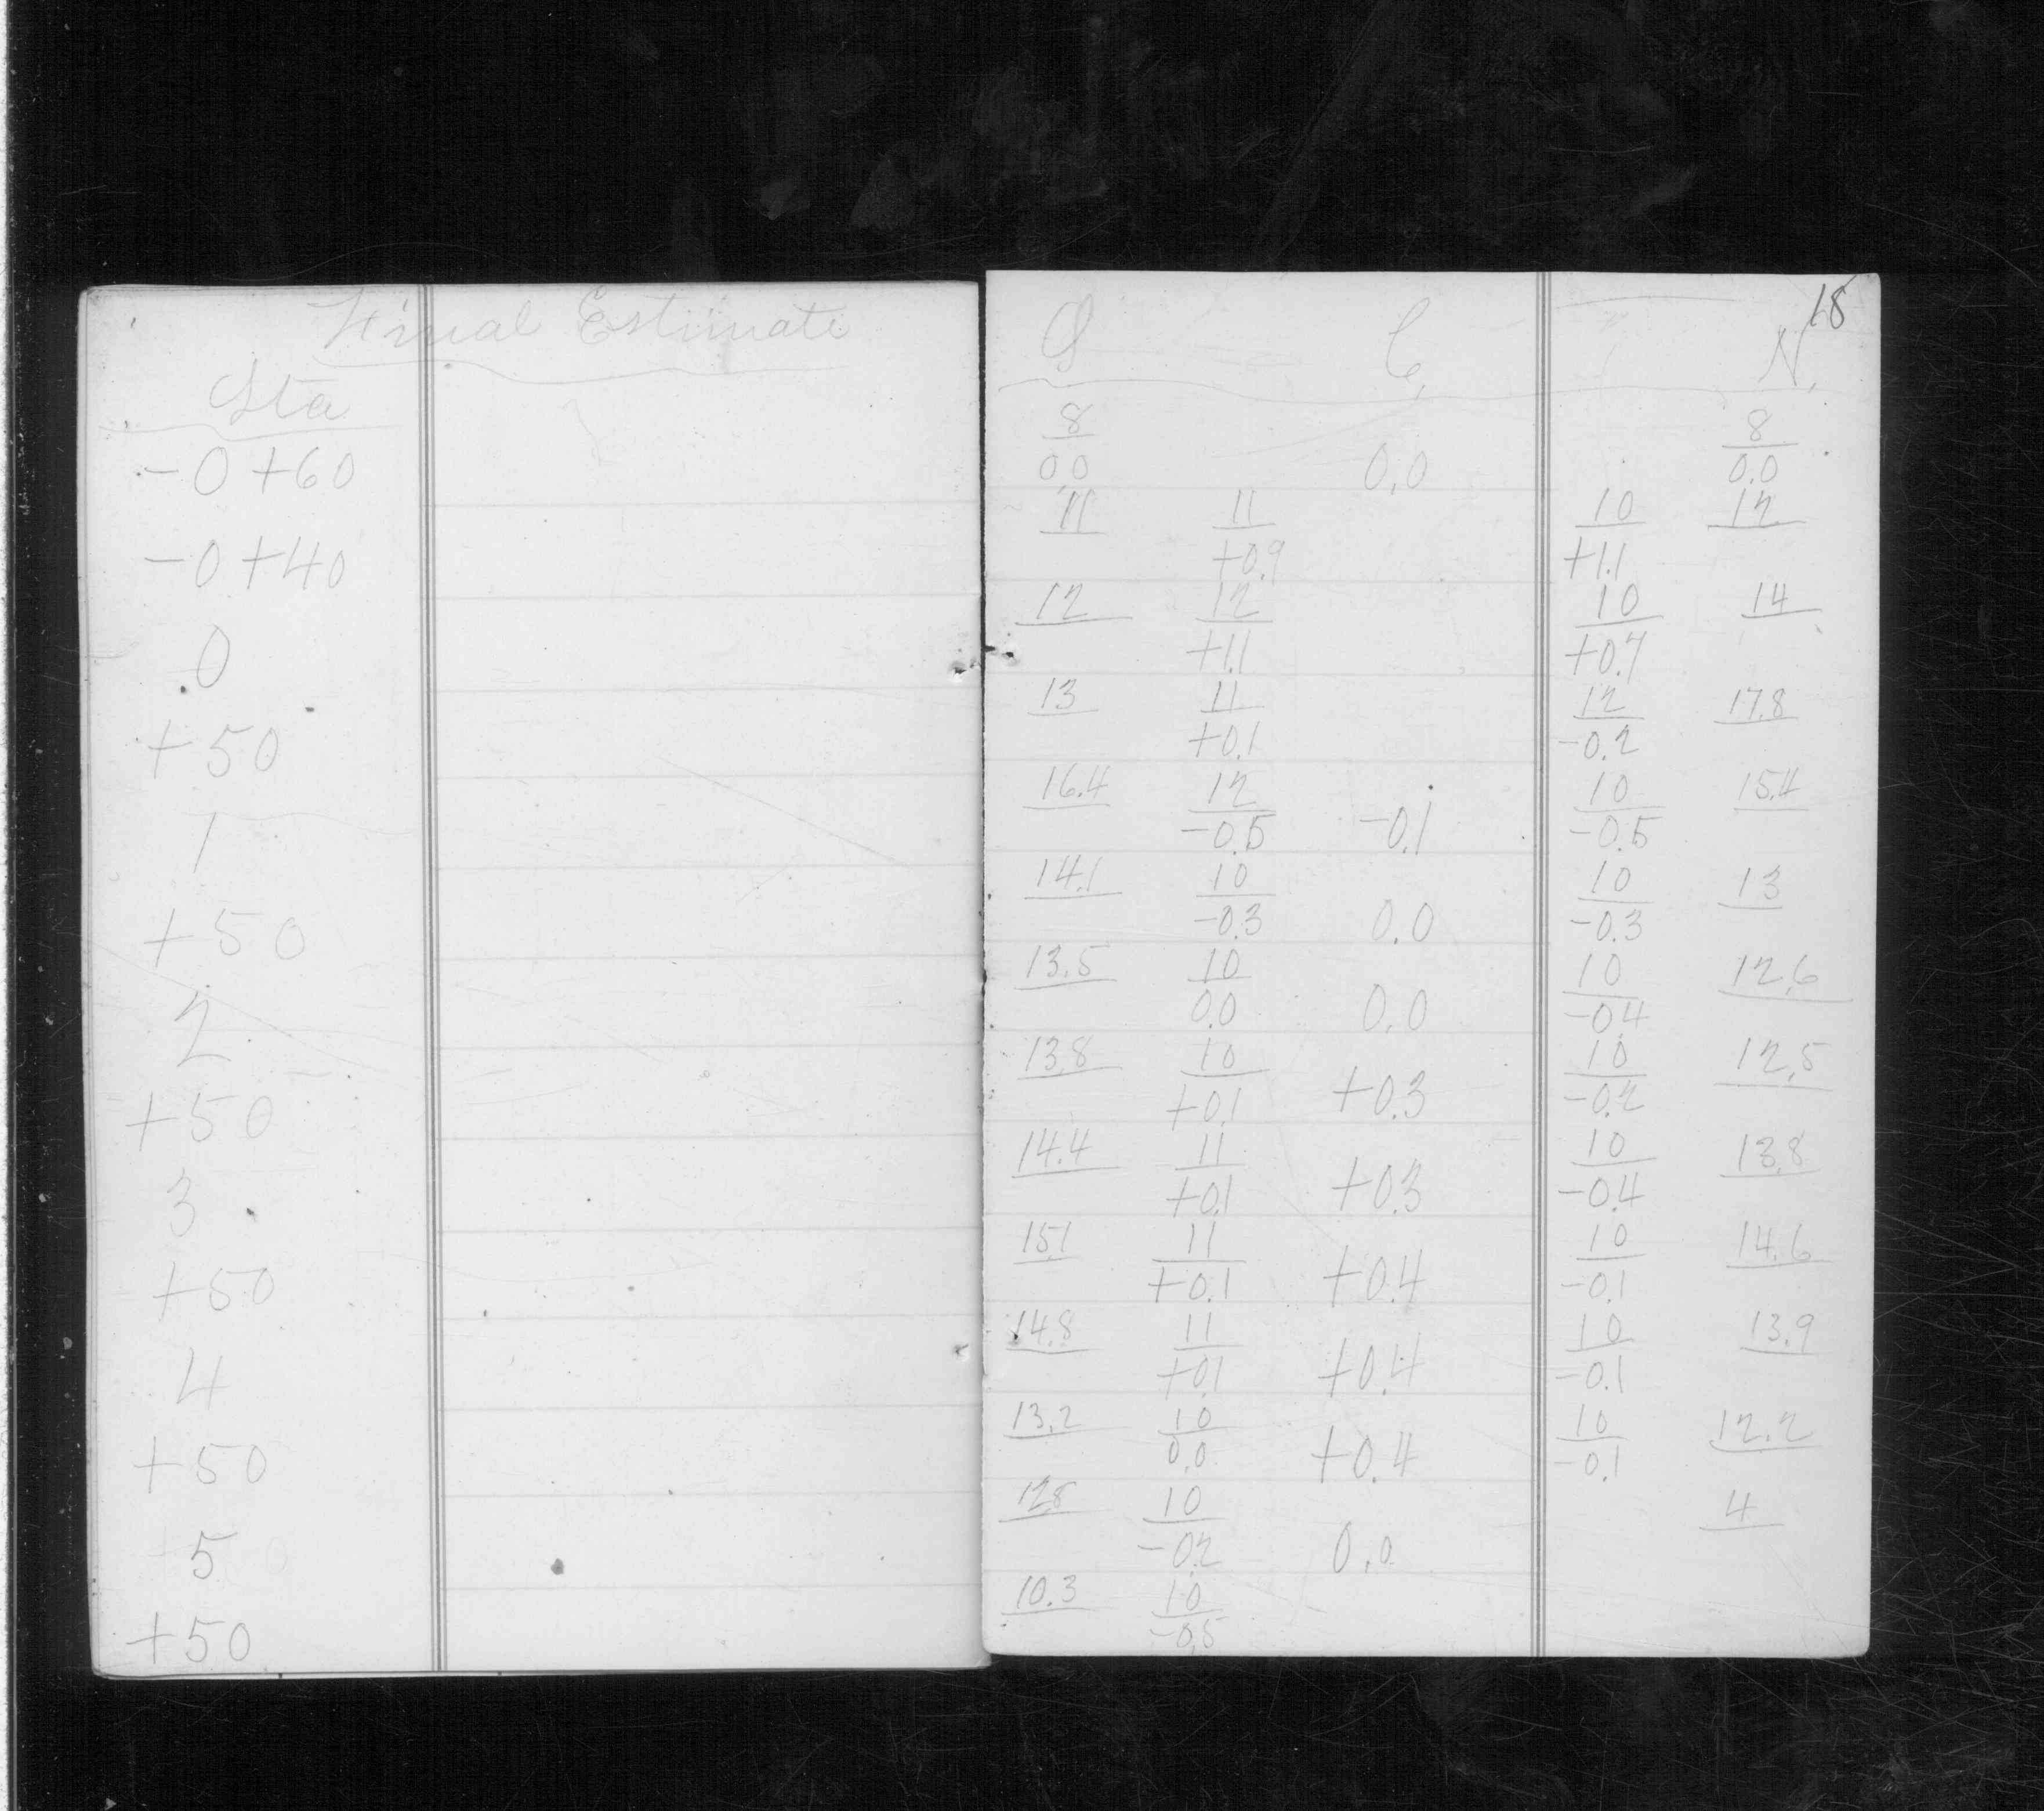 Final Estimate
Sta
-0+60
-0+40
0
+50
1
+50
2
+50
3
+50
4
+50
5
+50
18
S C, N.
8 8
0.0 0.0 0.0
11 11 10 12
+0.9 +1.1
12 12 10 14
+1.1 +0.7
13 11 12 17.8
+0.1 -0.2
16.4 12 10 15.4
-0.5 -0.1 -0.5
14.1 10 10 13
-0.3 0.0 -0.3
13.5 10 10 12.6
0.0 0.0 -0.4
13.8 10 10 12.5
+0.1 +0.3 -0.2
14.4 11 10 13.8
+0.1 +0.3 -0.4
15.1 11 10 14.6
+0.1 +0.4 -0.1
14.8 11 10 13.9
+0.1 +0.4 -0.1
13.2 10 10 12.2
0.0 +0.4 -0.1
12.8 10 4
-0.2 0.0
10.3 10
-0.5